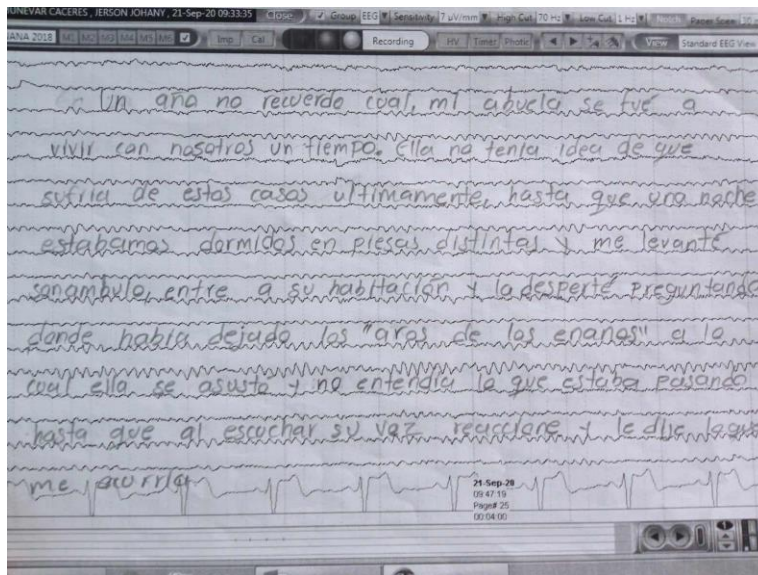 JUNEVAR CACERES, JERSON JOHANY, 21-Sep-20 09:33:35 Close Group EEG Sensitivity 7 uV/mm High Cut 70 Hz Low Cut 1 Hz Notch Paper Speed 30
ANA 2018 M1 M2 M3 M4 M5 M6 Imp Cal Recording HV Timer Photic View Standard EEG View
Un año no recuerdo cual, mi abuela se fué a
vivir con nosotros un tiempo. Ella no tenia idea de que
sufria de estos casos ultimamente, hasta que una noche
estabamos dormidos en piesas distintas y me levanté
sonambulo, entre a su habitación y la desperté preguntando
donde habia dejado los "aros de los enanos" a lo
cual ella se asusto y no entendia lo que estaba pasando
hasta que al escuchar su voz reaccione y le dije lo que
me ocurria
21-Sep-20
09:47:19
Page# 25
00:04:00